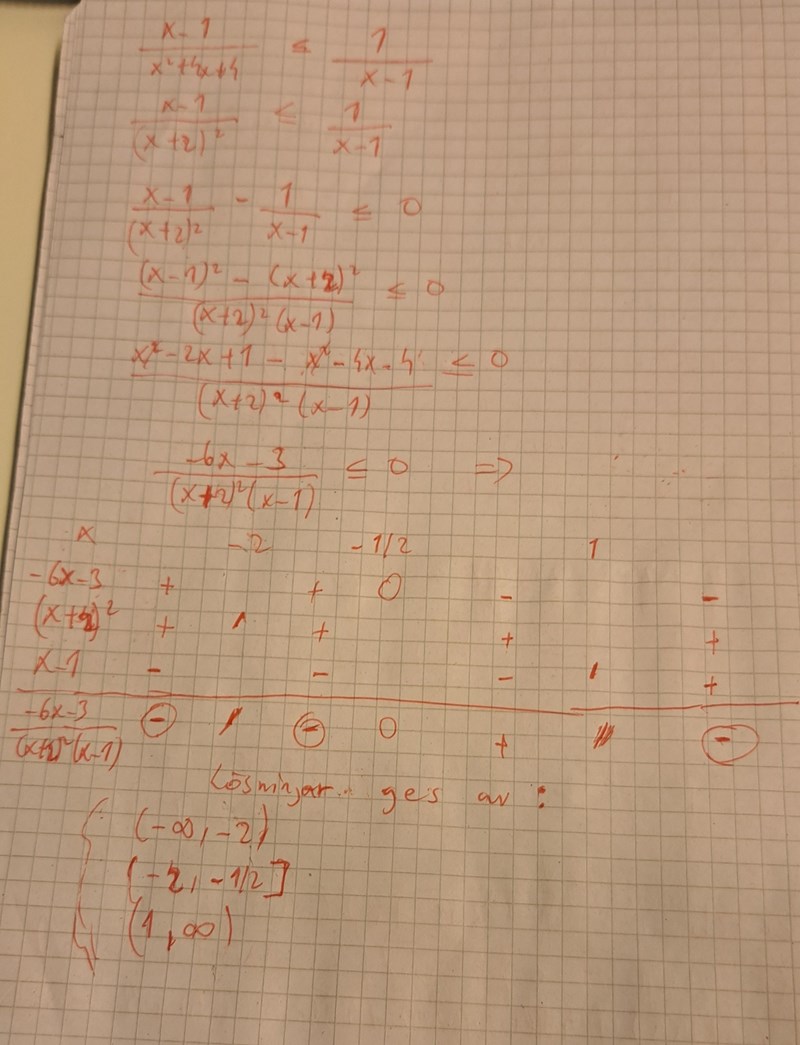 x-1/(x²+4x+4) ≤ 1/(x-1)
x-1/(x+2)² ≤ 1/(x-1)
x-1/(x+2)² - 1/(x-1) ≤ 0
((x-1)² - (x+2)²)/((x+2)²(x-1)) ≤ 0
(x²-2x+1 - x²-4x-4)/((x+2)²(x-1)) ≤ 0
(-6x-3)/((x+2)²(x-1)) ≤ 0 =>
x -2 -1/2 1
-6x-3 + + 0 - -
(x+2)² + / + + +
x-1 - - - / +
(-6x-3)/((x+2)²(x-1)) - / - 0 + // -
Lösningar ges av :
(-∞, -2)
(-2, -1/2]
(1, ∞)